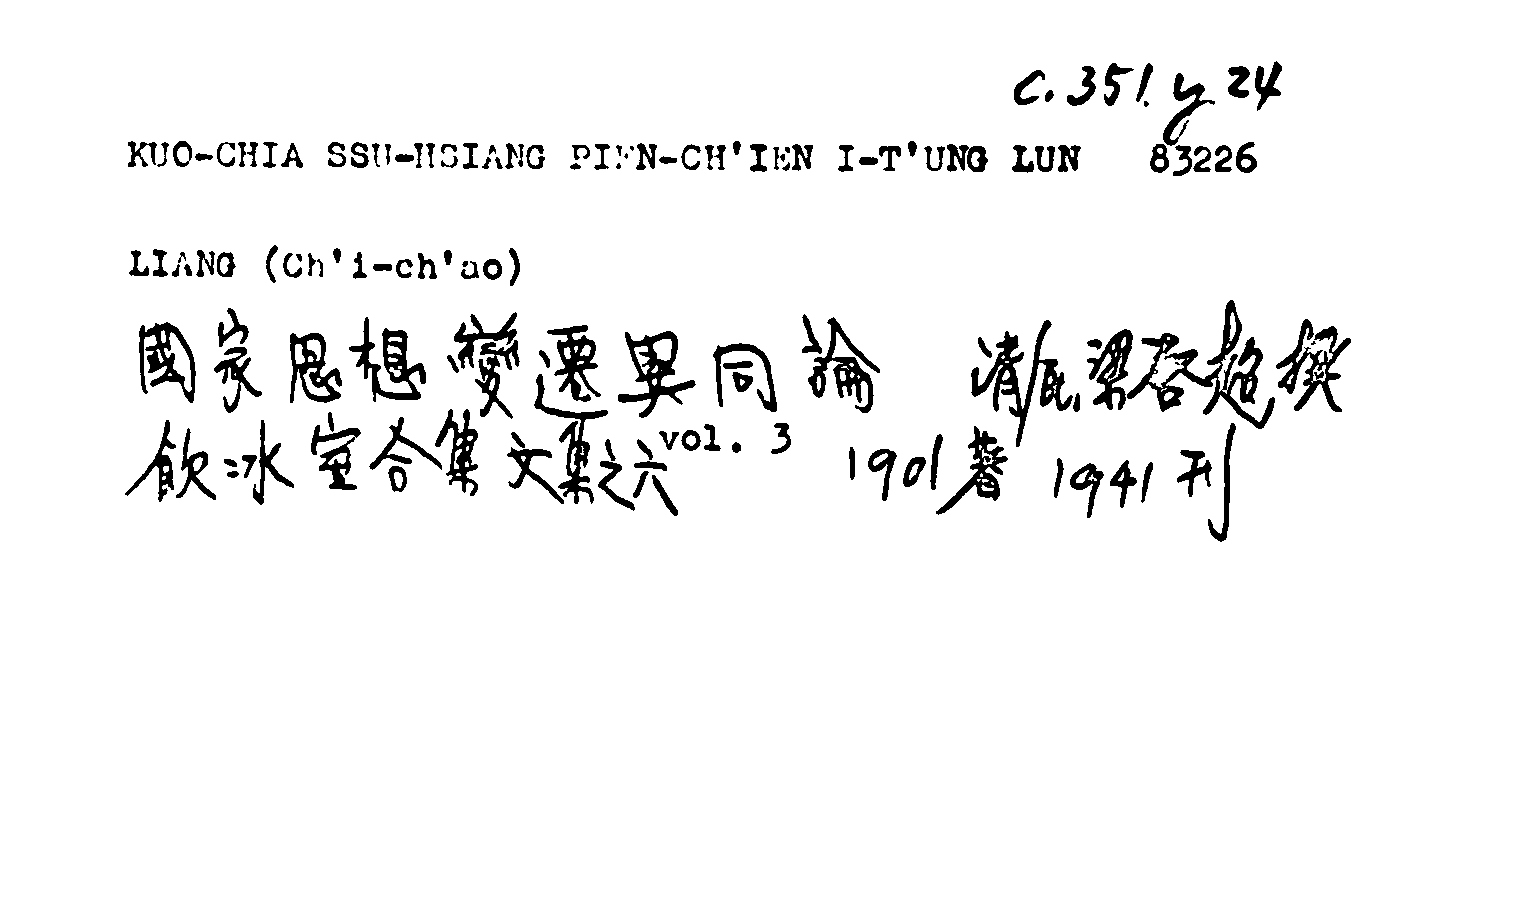 c. 351. y 24
KUO-CHIA SSU-HSIANG PIEN-CH'IEN I-T'UNG LUN 83226
LIANG (Ch'i-ch'ao)
國家思想變遷異同論 清民梁啓超撰
飲冰室合集文集之六 vol. 3 1901著 1941刊